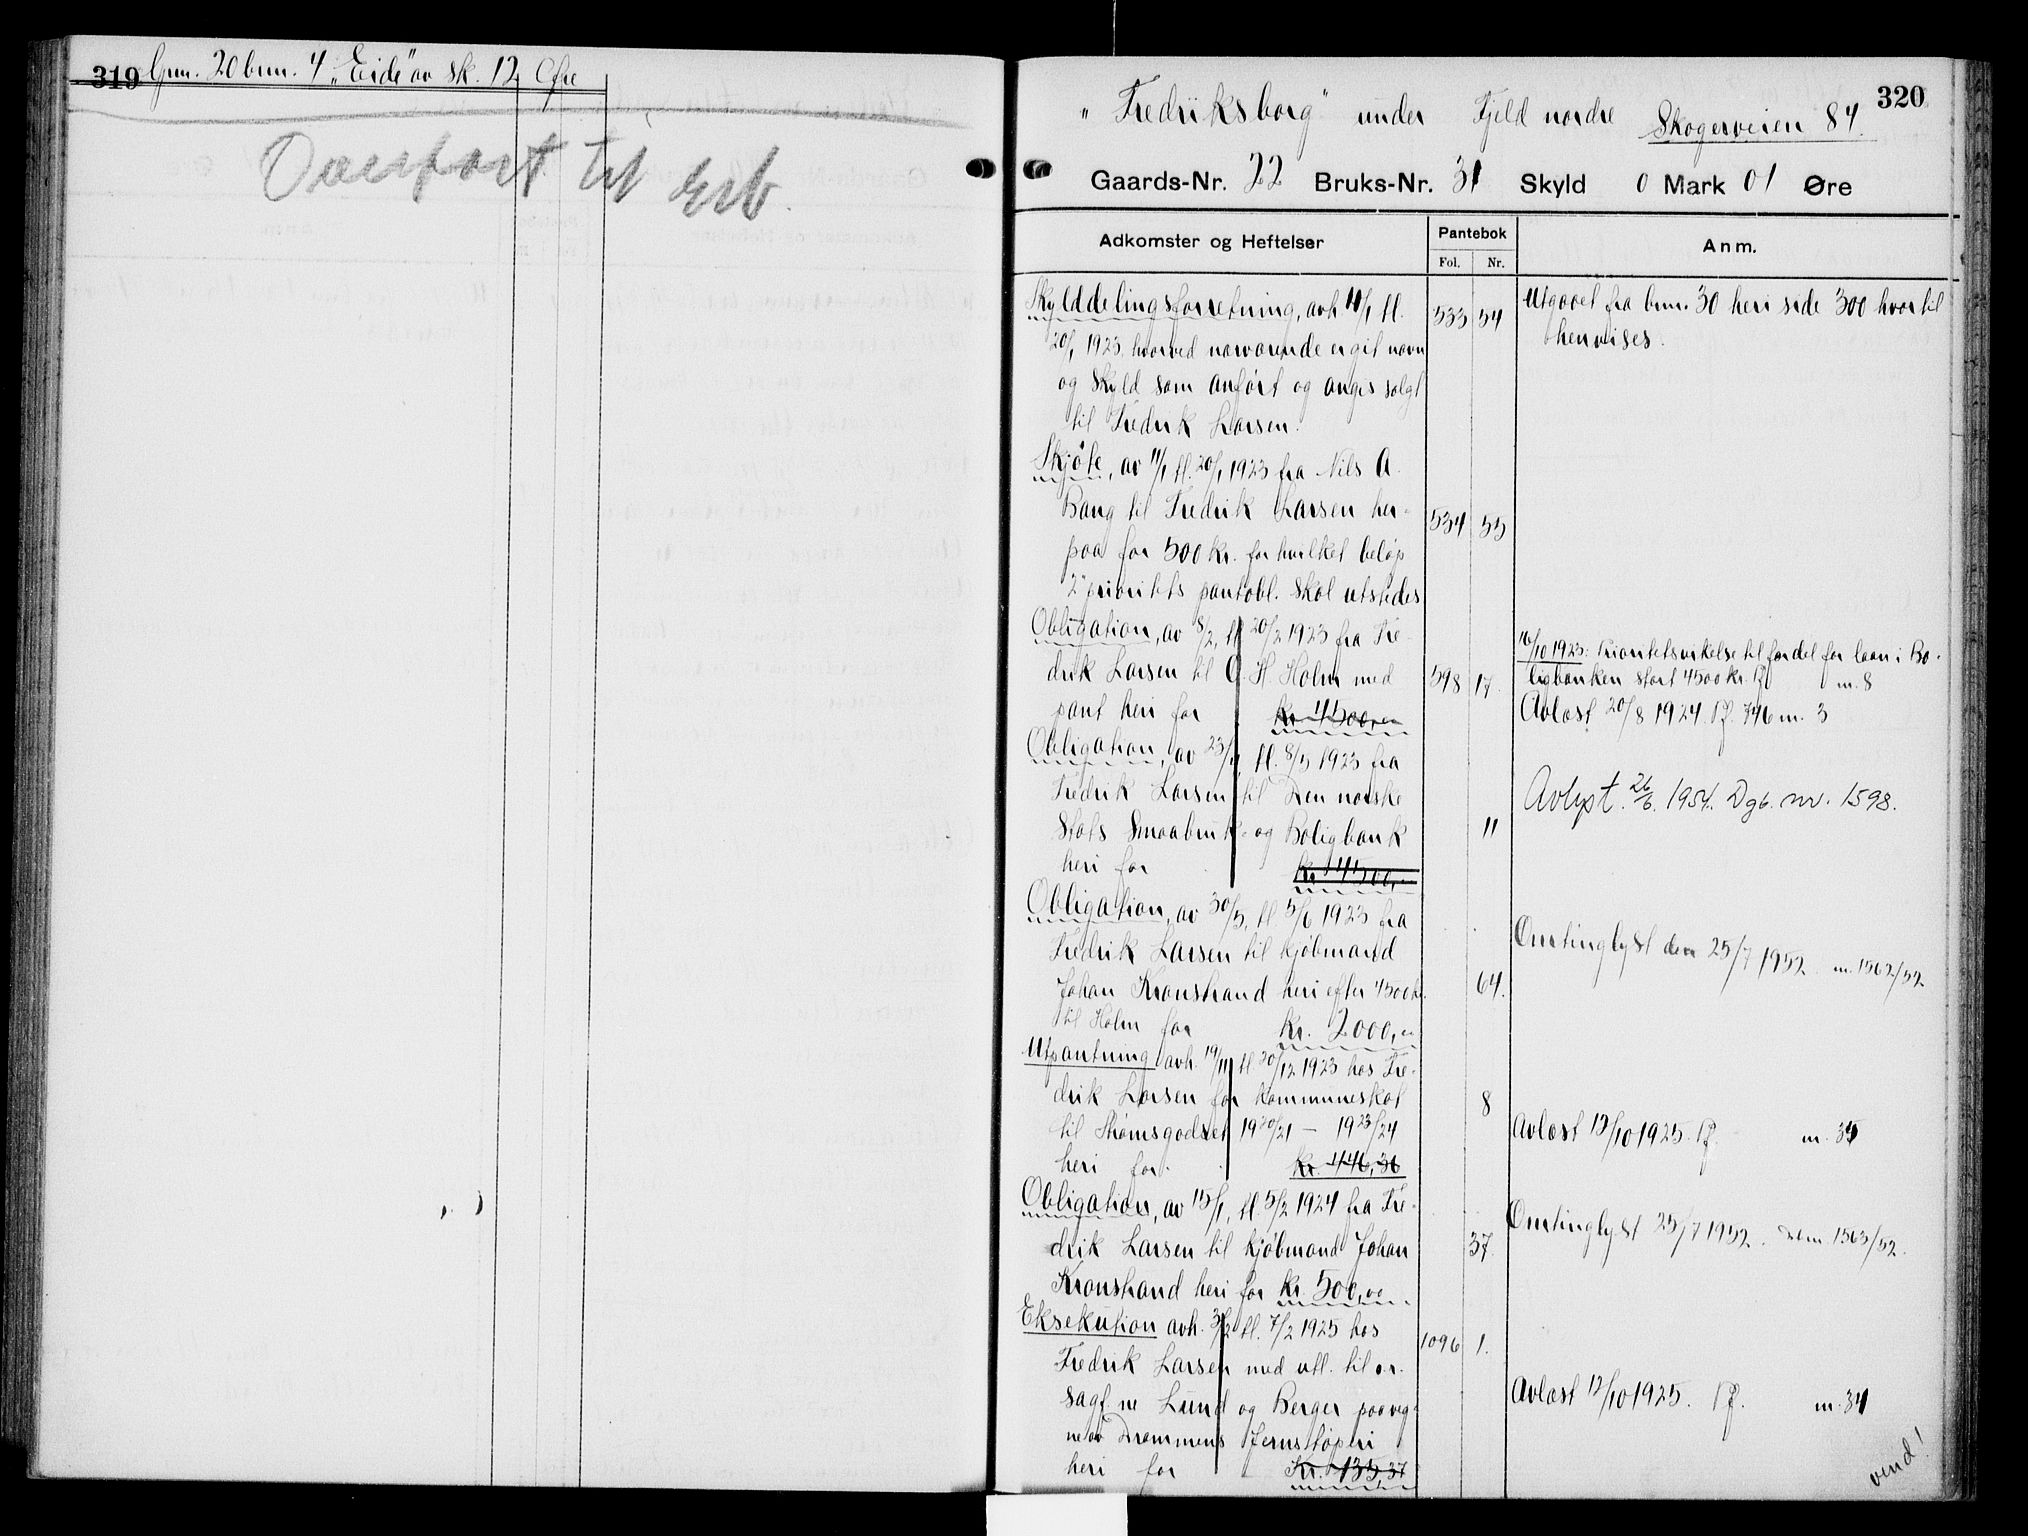 319 Gnr. 20 bnr. 4 "Eide" av sk. 12 Øre
Overført til
320
"Fredriksborg" under Fjeld nordre Skogerveien 84.
Gaards-Nr. 22 Bruks-Nr. 31 Skyld 0 Mark 01 Øre
Adkomster og Heftelser
Pantebok
Fol. Nr.
Anm.
Skylddelingsforretning, avh. 11/1 tl. 533 54 Utgaaet fra bnr. 30 heri side 300 hvortil
20/1 1923 hvorved nærværende er git navn henvises.
og skyld som anført og angis solgt
til Fredrik Larsen.
Skjøte, av 11/1 tl. 20/1 1923 fra Nils A.
Bang til Fredrik Larsen her- 534 55
paa for 500 kr. for hvilket beløp
2' prioritets pantobl. skal utstedes
Obligation, av 8/2, tl. 20/2 1923 fra Fre- 16/10 1923: Prioritetsvikelse til fordel for laan i Bo-
drik Larsen til O. H. Holm med 598 17. ligbanken stort 4500 kr. Pf. nr. 8
pant heri for kr. 4500,00 Avlæst 20/8 1924 Pf. 746 nr. 3
Obligation, av 23/4, tl. 8/5 1923 fra
Fredrik Larsen til Den norske Avlyst. 26/6. 1954. Dgb. nr. 1598.
Stats Smaabruk- og Boligbank 11
heri for kr. 4500,-
Obligation, av 30/5, tl. 5/6 1923 fra
Fredrik Larsen til kjøbmand Omtinglyst den 25/7 1952. nr. 1562/52
Johan Kronstrand heri efter 4500 kr. 64.
til Holm for kr. 2000,00
Utpantning avh. 19/11 tl. 20/12 1923 hos Fre-
drik Larsen for kommuneskat 8
til Strømsgodset 1920/21 – 1923/24 Avlæst 12/10 1925. Pf. nr. 35
heri for kr. 446,36
Obligation, av 15/1, tl. 5/2 1924 fra Fre-
drik Larsen til kjøbmand Johan 37. Omtinglyst 25/7 1952. nr. 1563/52.
Kronstrand heri for kr. 500,00
Eksekution avh. 3/2 tl. 7/2 1925 hos
Fredrik Larsen med utl. til or. 1096 1.
sagf. ne Lund og Berger paa veg- Avlæst 12/10 1925. Pf. nr. 34
ne av Drammens Jernstøperi
heri for Kr. 135,37
vend!